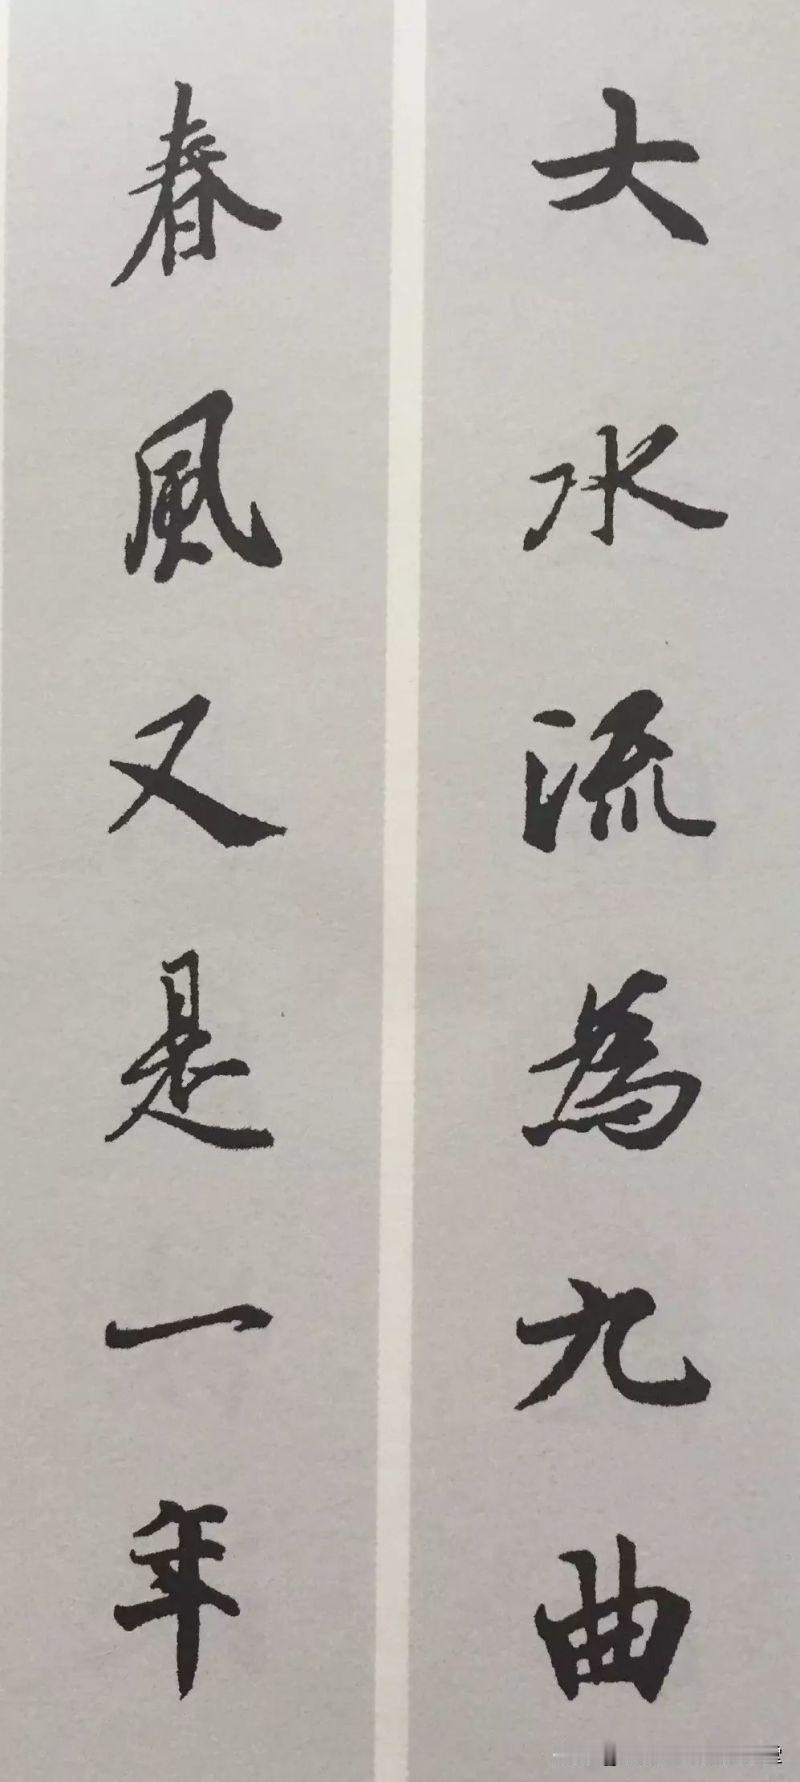 大水流為九曲
春風又是一年